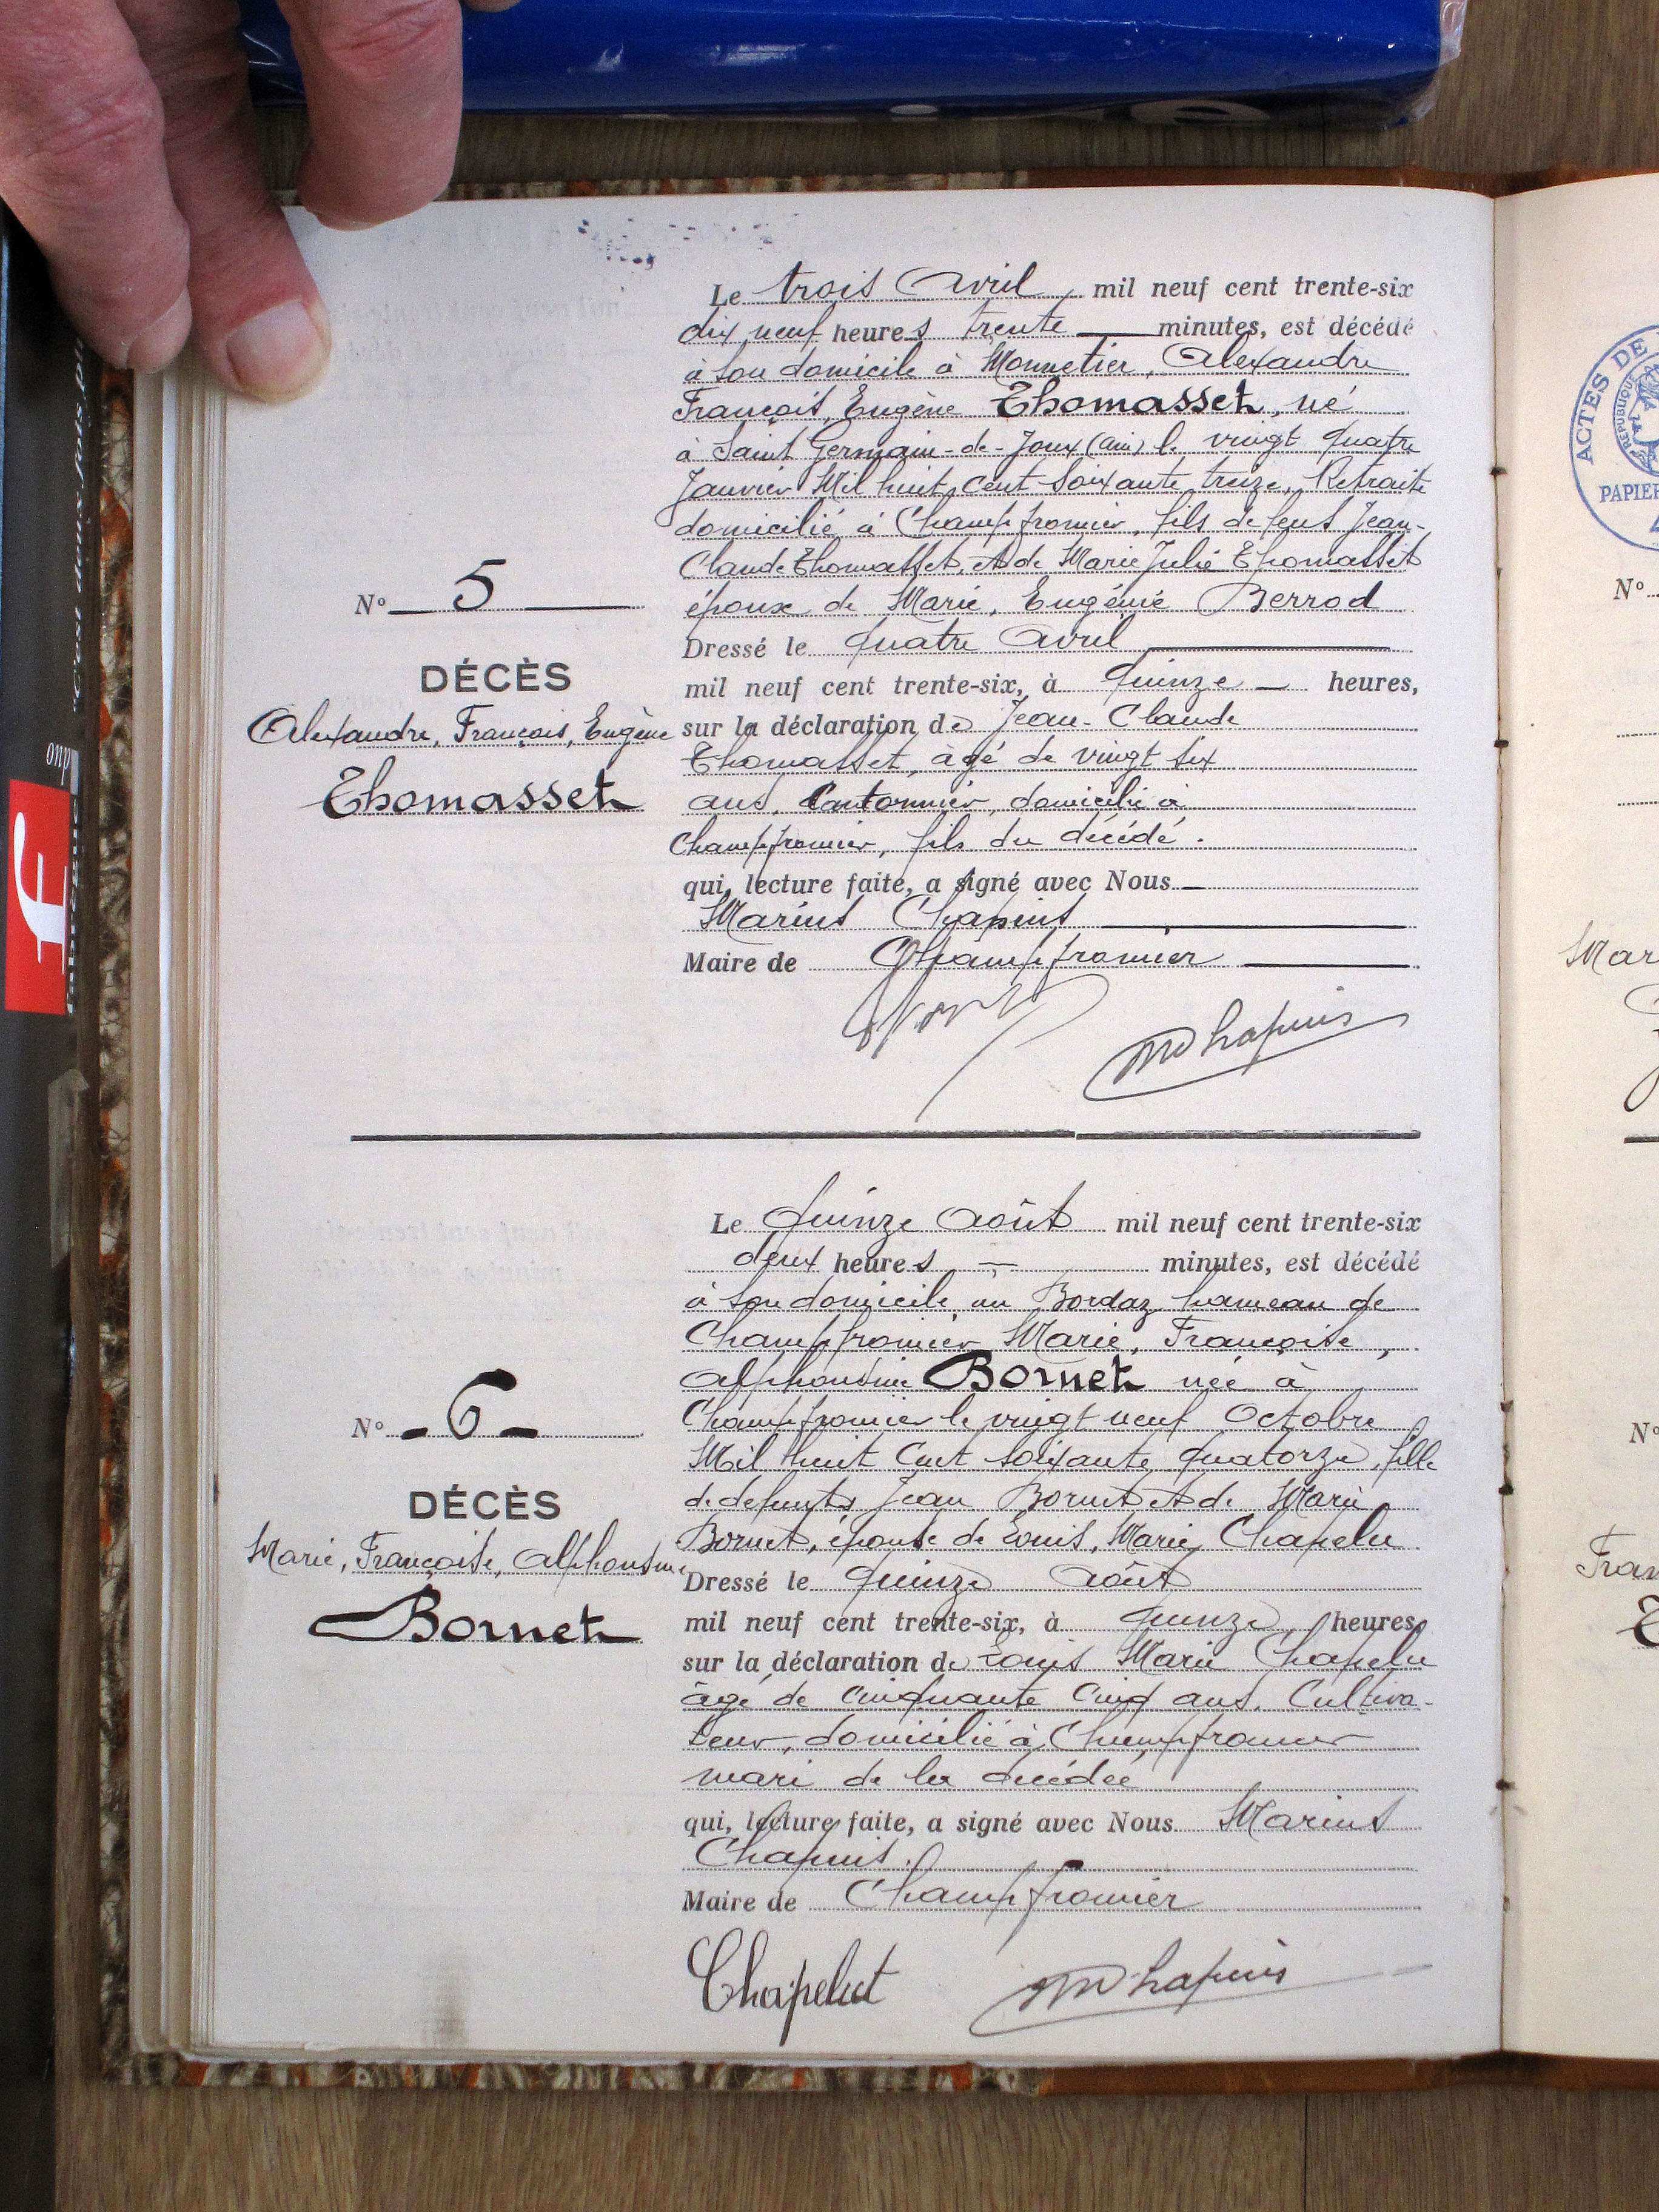 Le trois Avril mil neuf cent trente-six
dix neuf heures trente minutes, est décédé
à son domicile à Monnetier, Alexandre
François, Eugène Thomasset, né
à Saint Germain-de-Joux (Ain) le vingt quatre
Janvier Mil huit cent soixante treize, Retraité
domicilié à Champfromier, fils de feus Jean-
Claude Thomasset, et de Marie Julie Thomasset
époux de Marie, Eugénie Berrod
Dressé le quatre Avril
mil neuf cent trente-six, à quinze heures,
sur la déclaration de Jean-Claude
Thomasset, âgé de vingt six
ans, Cantonnier, domicilié à
Champfromier, fils du décédé.
qui, lecture faite, a signé avec Nous
Marius Chapuis
Maire de Champfromier
N° 5
DÉCÈS
Alexandre, François, Eugène
Thomasset
MChapuis
Le quinze Août mil neuf cent trente-six
deux heures minutes, est décédé
à son domicile au Bordaz hameau de
Champfromier Marie, Françoise,
Alphonsine Bornet née à
Champfromier le vingt neuf Octobre
Mil huit cent soixante quatorze, fille
de defunts Jean Bornet et de Marie
Bornet, épouse de Louis, Marie, Chapelu
Dressé le quinze Août
mil neuf cent trente-six, à quinze heures,
sur la déclaration de Louis Marie Chapelu
âgé de cinquante cinq ans, Cultiva-
teur, domicilié à Champfromier
mari de la décédée
qui, lecture faite, a signé avec Nous Marius
Chapuis.
Maire de Champfromier
N° -6-
DÉCÈS
Marie, Françoise, Alphonsine
Bornet
Chapelut
MChapuis
ACTES DE
RÉPUBLIQUE
PAPIER
N°
Mar
N°
Fran